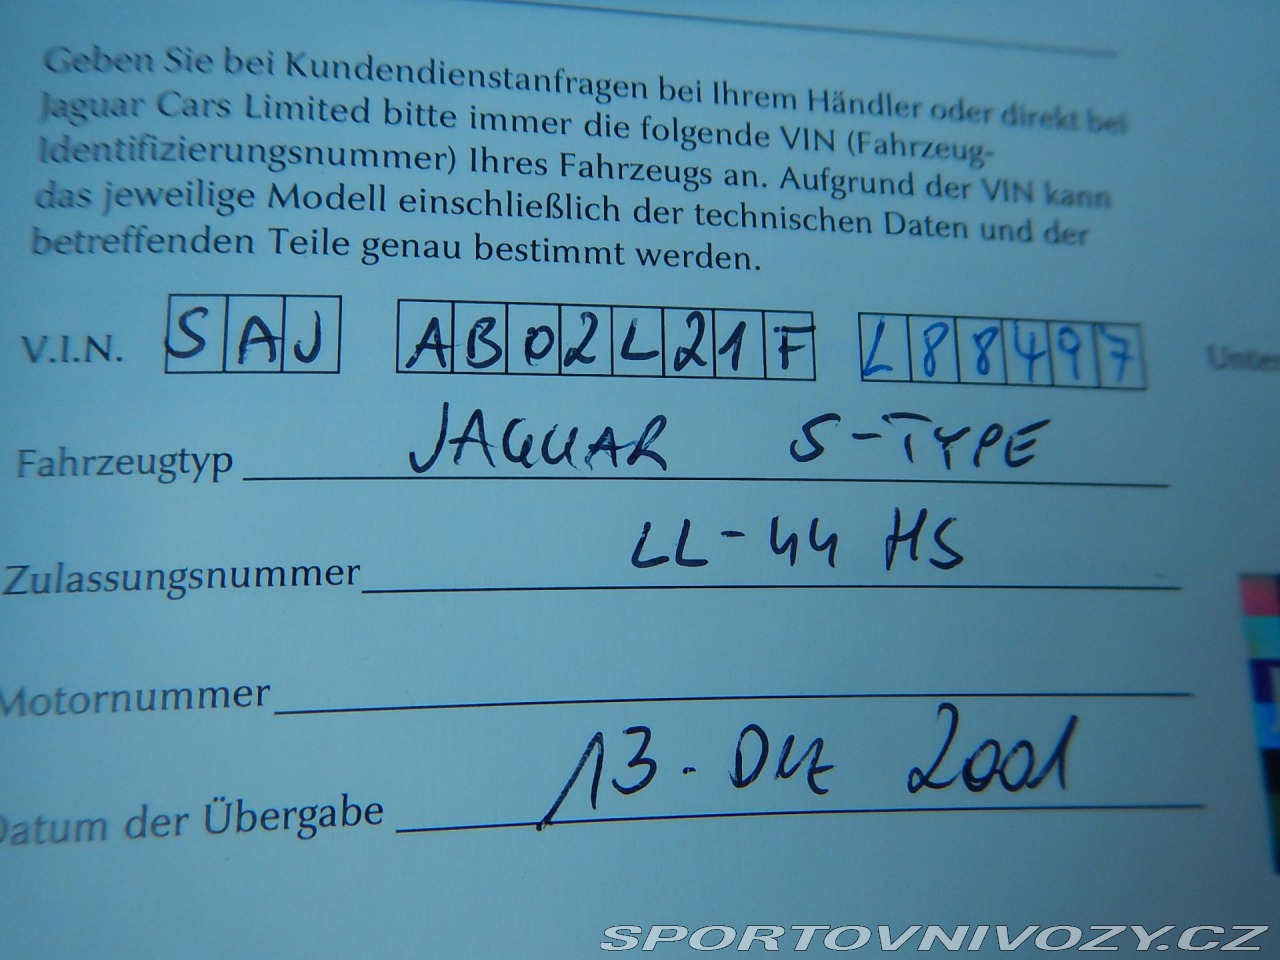 Geben Sie bei Kundendienstanfragen bei Ihrem Händler oder direkt bei
Jaguar Cars Limited bitte immer die folgende VIN (Fahrzeug-
Identifizierungsnummer) Ihres Fahrzeugs an. Aufgrund der VIN kann
das jeweilige Modell einschließlich der technischen Daten und der
betreffenden Teile genau bestimmt werden.
V.I.N. SAJ AB02L21F L88497
Fahrzeugtyp JAGUAR S-TYPE
Zulassungsnummer LL-44 HS
Motornummer
Datum der Übergabe 13. Dez 2001
SPORTOVNIVOZY.CZ